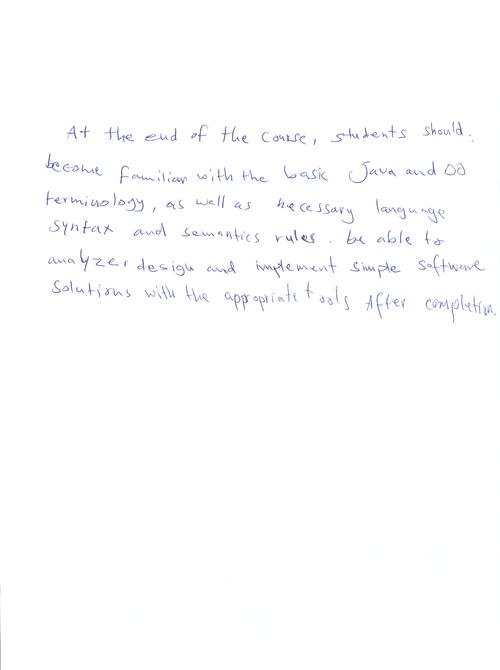 At the end of the course, students should:
become familiar with the basic Java and OO
terminology, as well as necessary language
syntax and semantics rules. be able to
analyzer design and implement simple software
solutions with the appropriate tools After completion.